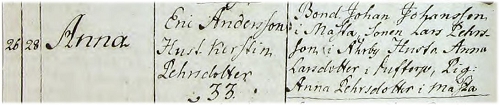 26 28 Anna
Eric Andersson
Hust Kierstin
Pehrsdotter
33.
Bond Johan Johansson
i Måsta, Sonen Lars Pehrs-
son i Åkrby Hustr Anna
Larsdotter i Pig:
Anna Pehrsdotter i Måsta